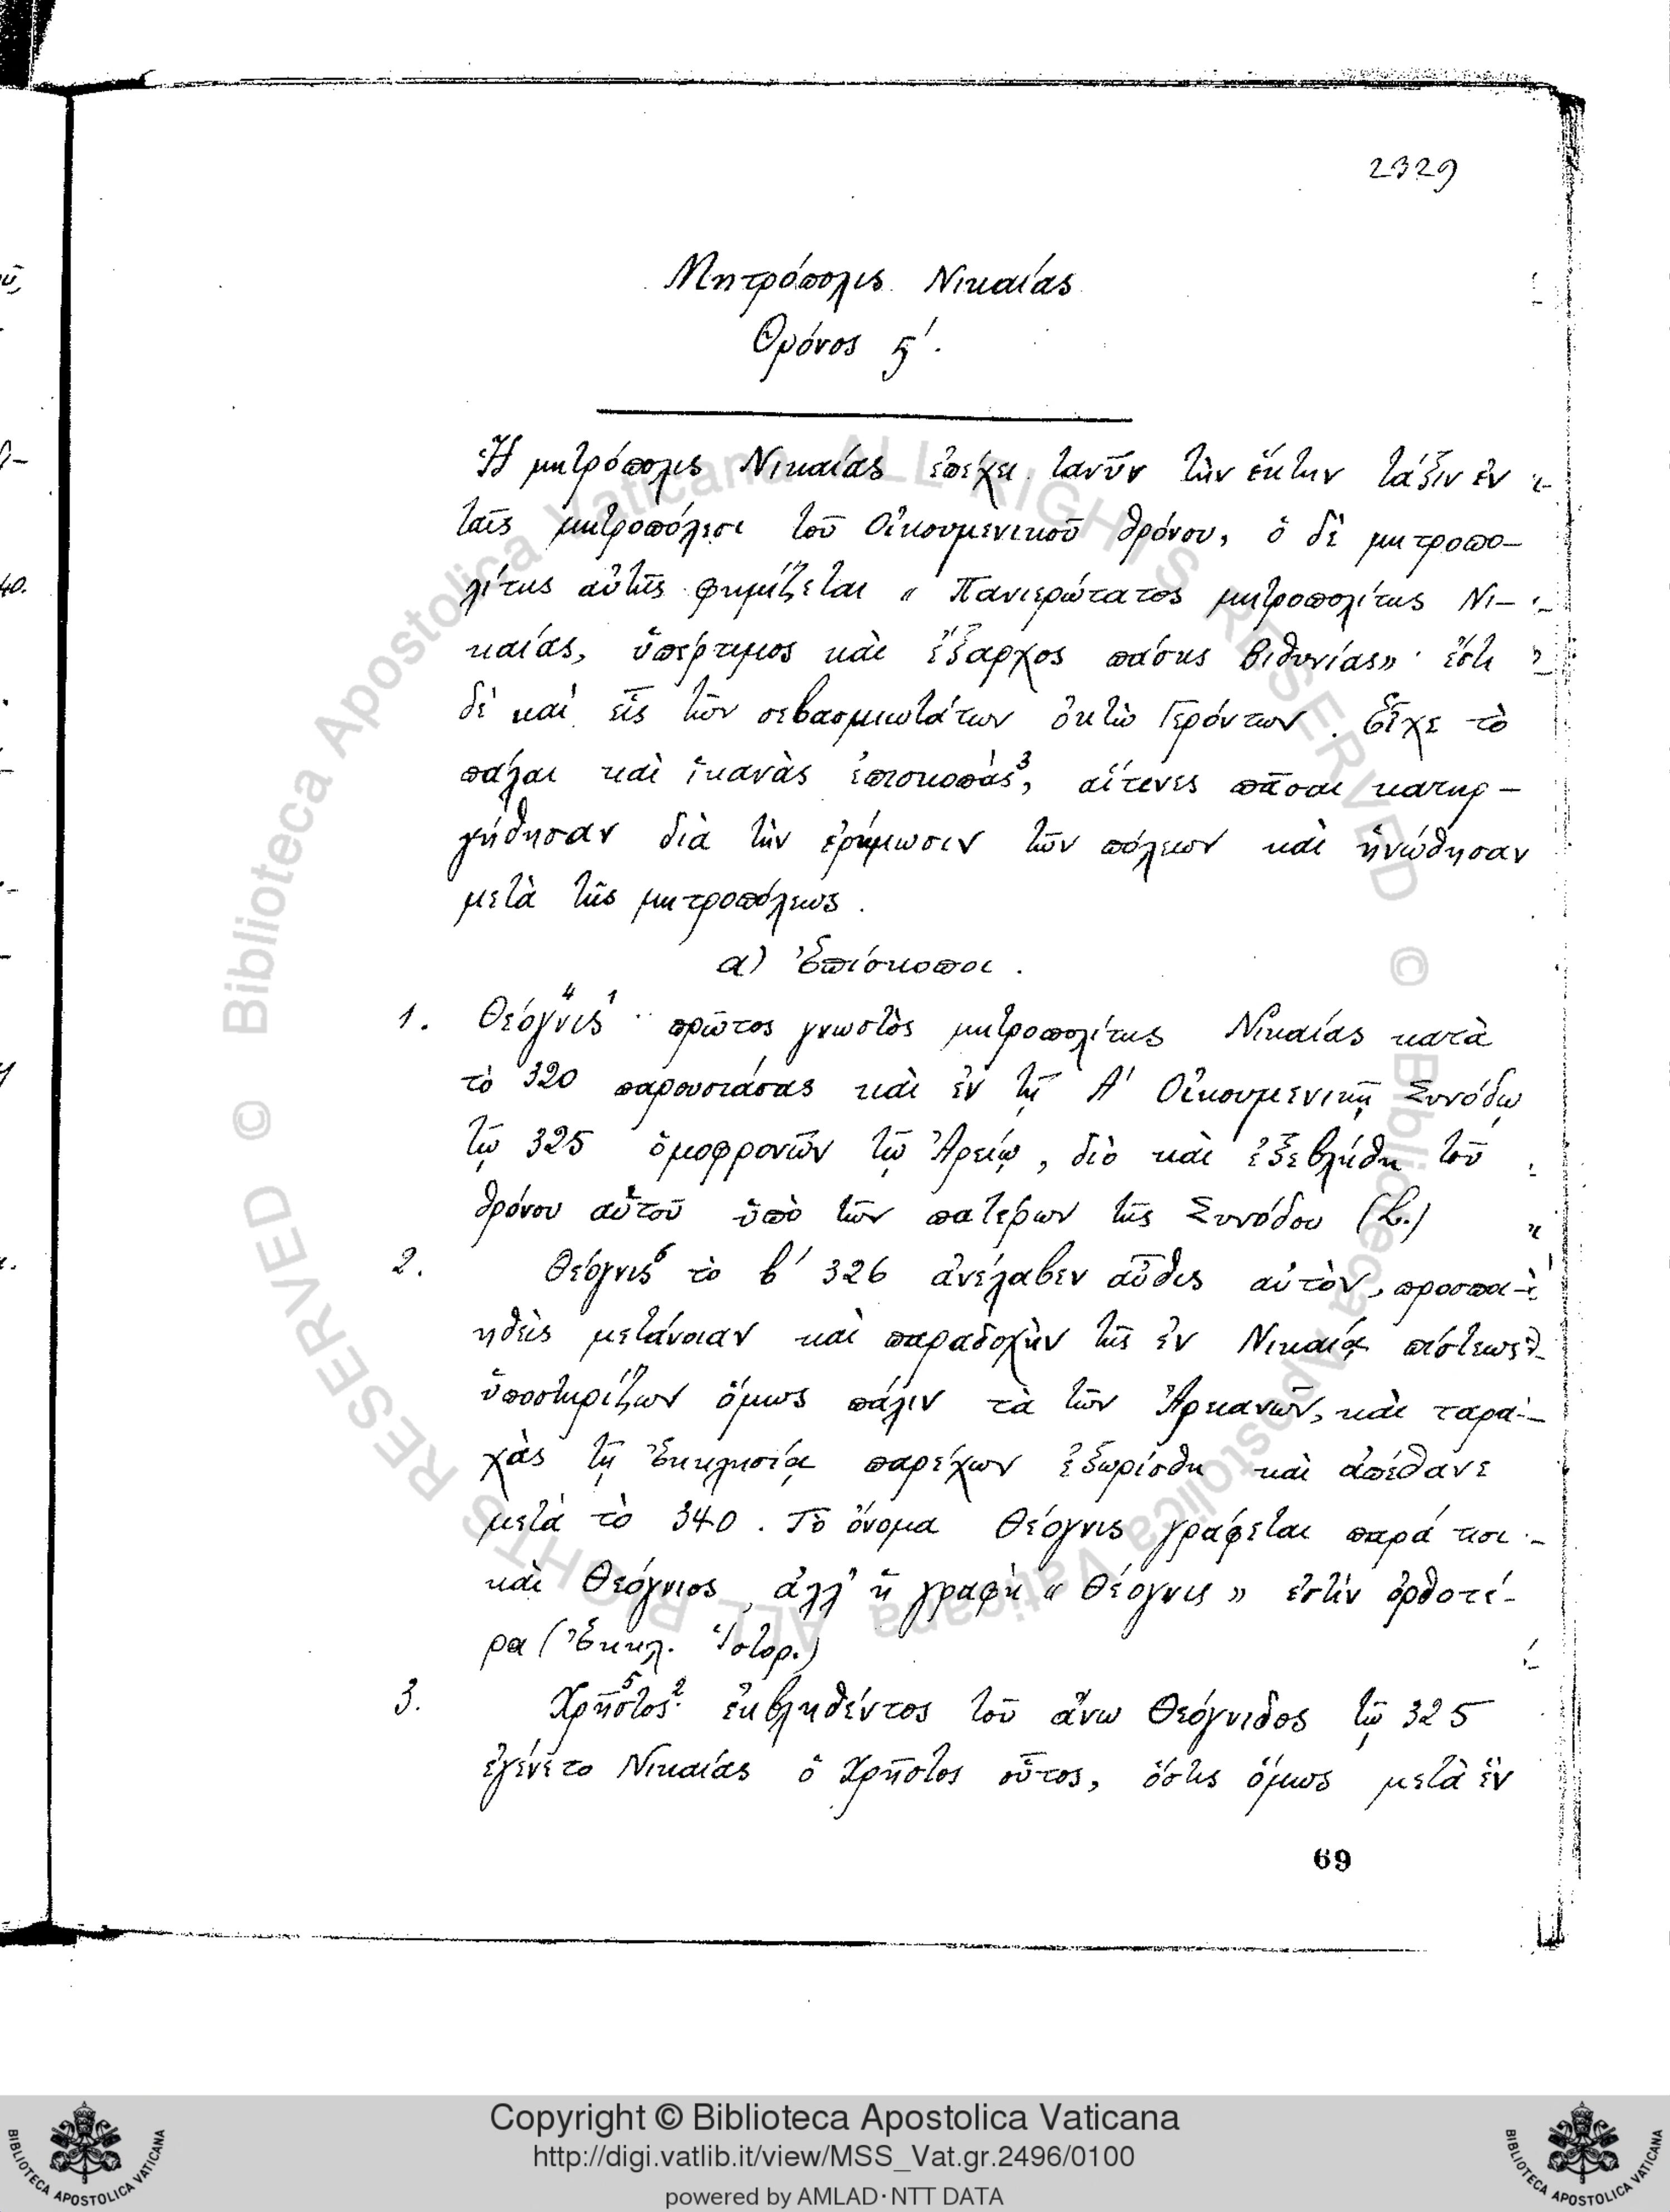 2329
Μητρόπολις Νικαίας
Θρόνος ϛ΄.
Ἡ μητρόπολις Νικαίας ἐπέχει τανῦν τὴν ἕκτην τάξιν ἐν
ταῖς μητροπόλεσι τοῦ Οἰκουμενικοῦ θρόνου, ὁ δὲ μητροπο-
λίτης αὐτῆς φημίζεται « Πανιερώτατος μητροπολίτης Νι-
καίας, ὑπέρτιμος καὶ ἔξαρχος πάσης Βιθυνίας» · ἔστι
δὲ καὶ εἷς τῶν σεβασμιωτάτων ὀκτὼ Γερόντων. Εἶχε τὸ
πάλαι καὶ ἱκανὰς ἐπισκοπάς³, αἵτινες πᾶσαι κατηρ-
γήθησαν διὰ τὴν ἐρήμωσιν τῶν πόλεων καὶ ἡνώθησαν
μετὰ τῆς μητροπόλεως.
α) Ἐπίσκοποι.
1. Θέογνις⁴ ¹ · πρῶτος γνωστὸς μητροπολίτης Νικαίας κατὰ
τὸ 320 παρουσιάσας καὶ ἐν τῇ Α΄ Οἰκουμενικῇ Συνόδῳ
τῷ 325 ὁμοφρονῶν τῷ Ἀρείῳ, διὸ καὶ ἐξεβλήθη τοῦ
θρόνου αὐτοῦ ὑπὸ τῶν πατέρων τῆς Συνόδου (L.)
2. Θέογνις⁶ τὸ β΄ 326 ἀνέλαβεν αὖθις αὐτὸν, προσποι-
ηθεὶς μετάνοιαν καὶ παραδοχὴν τῆς ἐν Νικαίᾳ πίστεως
ὑποστηρίζων ὅμως πάλιν τὰ τῶν Ἀρειανῶν, καὶ ταρα-
χὰς τῇ Ἐκκλησίᾳ παρέχων ἐξωρίσθη καὶ ἀπέθανε
μετὰ τὸ 340. Τὸ ὄνομα Θέογνις γράφεται παρά τισι
καὶ Θεόγνιος, ἀλλ' ἡ γραφὴ « Θέογνις » ἐστὶν ὀρθοτέ-
ρα (Ἐκκλ. Ἱστορ.)
3. Χρῆστος⁵ ² · ἐκβληθέντος τοῦ ἄνω Θεόγνιδος τῷ 325
ἐγένετο Νικαίας ὁ Χρῆστος οὗτος, ὅστις ὅμως μετὰ ἓν
69
© Biblioteca Apostolica Vaticana ALL RIGHTS RESERVED © Biblioteca Apostolica Vaticana ALL RIGHTS RESERVED
Copyright © Biblioteca Apostolica Vaticana
http://digi.vatlib.it/view/MSS_Vat.gr.2496/0100
powered by AMLAD·NTT DATA
BIBLIOTECA APOSTOLICA VATICANA
BIBLIOTECA APOSTOLICA VATICANA